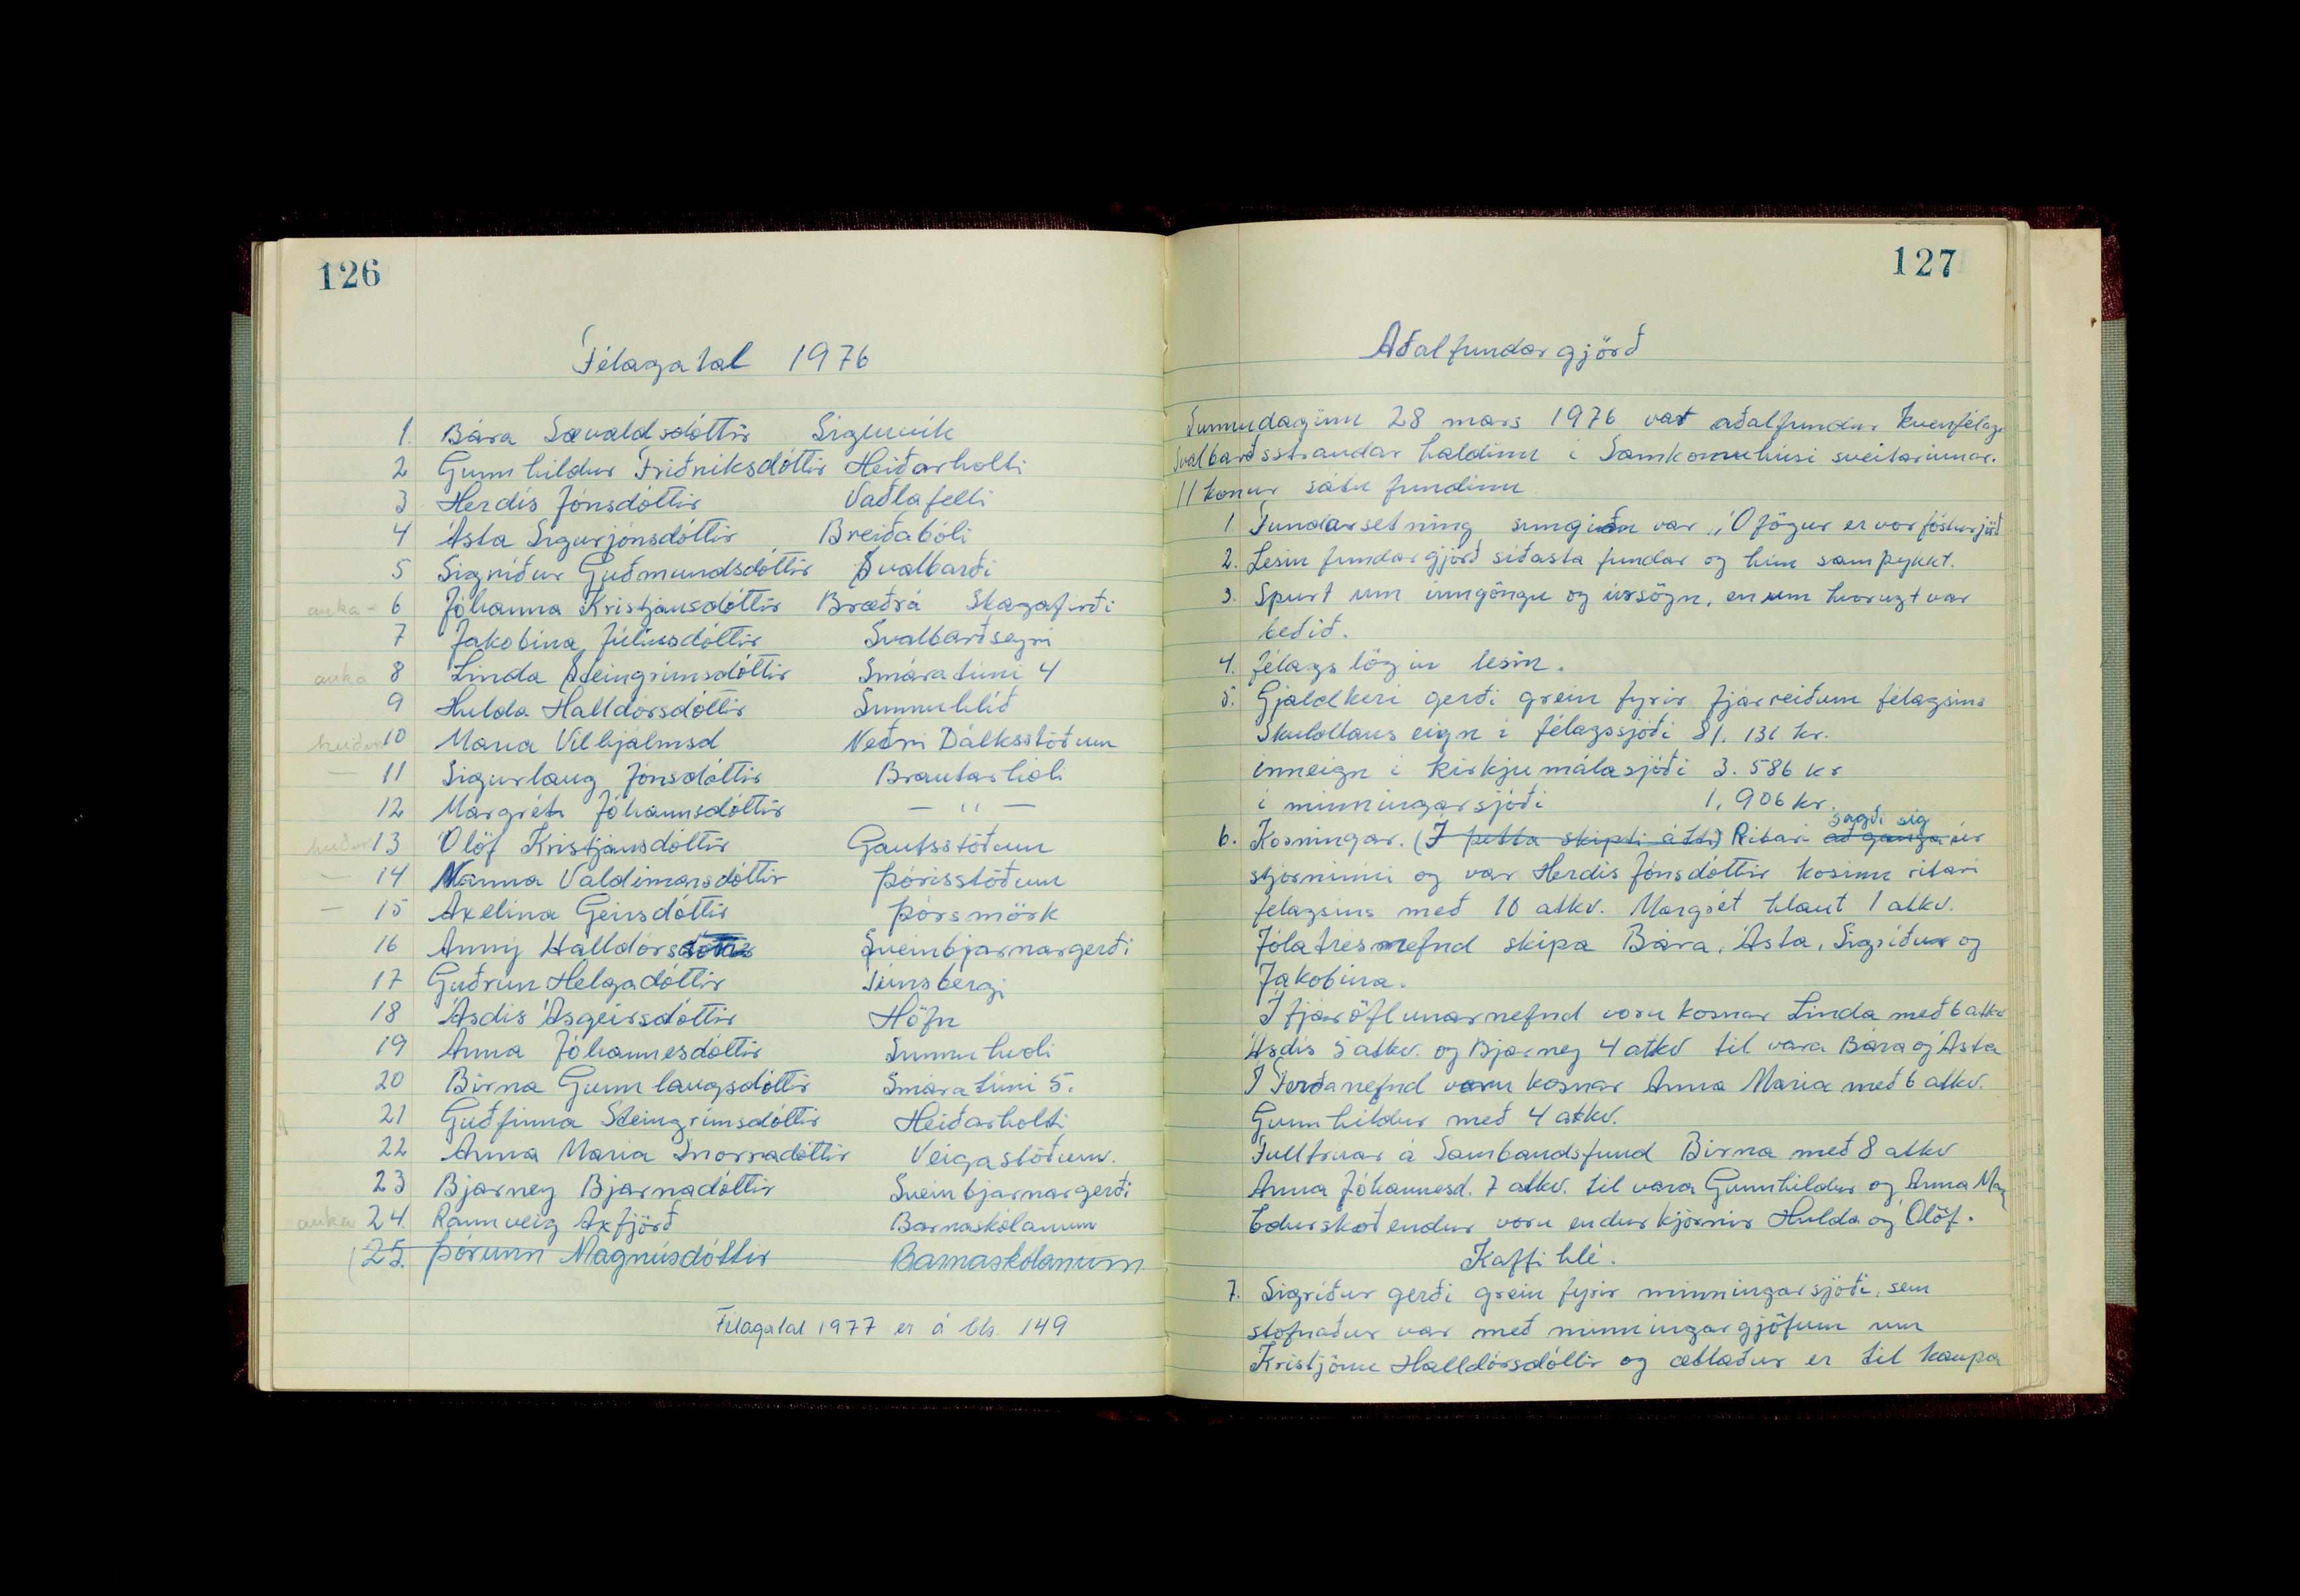 126
Félagatal 1976
1. Bára Sævaldsdóttir Sigluvík
2 Gunnhildur Friðriksdóttir Heiðarholti
3 Herdís Jónsdóttir Vaðlafelli
4 Ásta Sigurjónsdóttir Breiðabóli
5 Sigríður Guðmundsdóttir Svalbarði
auka - 6 Jóhanna Kristjánsdóttir Bræðrá Skagafirði
7 Jakobína Júlíusdóttir Svalbarðseyri
auka 8 Linda Steingrímsdóttir Smáratúni 4
9 Hulda Halldórsdóttir Sunnuhlíð
heiðurs 10 María Vilhjálmsd Neðri Dálksstöðum
— 11 Sigurlaug Jónsdóttir Brautarhóli
12 Margrét Jóhannsdóttir — " —
heiðurs 13 Ólöf Kristjánsdóttir Gautsstöðum
— 14 Nanna Valdimarsdóttir Þórisstöðum
— 15 Axelína Geirsdóttir Þórsmörk
16 Anny Halldórsdóttir Sveinbjarnargerði
17 Guðrún Helgadóttir Túnsbergi
18 Ásdís Ásgeirsdóttir Höfn
19 Anna Jóhannesdóttir Sunnuhvoli
20 Birna Gunnlaugsdóttir Smáratúni 5.
21 Guðfinna Steingrímsdóttir Heiðarholti
22 Anna María Snorradóttir Veigastöðum.
23 Bjarney Bjarnadóttir Sveinbjarnargerði
auka 24. Rannveig Axfjörð Barnaskólanum
(25. Þórunn Magnúsdóttir Barnaskólanum
Félagatal 1977 er á bls. 149
127
Aðalfundargjörð
Sunnudaginn 28 mars 1976 var aðalfundur Kvenfélags
Svalbarðsstrandar haldinn í Samkomuhúsi sveitarinnar.
11 konur sátu fundinn
1. Fundarsetning, sungið var „Ó fögur er vor fósturjörð
2. Lesin fundargjörð síðasta fundar og hún samþykkt.
3. Spurt um inngöngu og úrsögn, en um hvorugt var
beðið.
4. Félagslögin lesin.
5. Gjaldkeri gerði grein fyrir fjárreiðum félagsins
Skuldlaus eign í félagssjóði 81.131 kr.
inneign í kirkjumálasjóði 3.586 kr
í minningarsjóði 1,906 kr.
6. Kosningar. (Í þetta skipti átti) Ritari að ganga sagði sig úr
stjórninni og var Herdís Jónsdóttir kosinn ritari
félagsins með 10 atkv. Margrét hlaut 1 atkv.
Jólatrésnefnd skipa Bára, Ásta, Sigríður og
Jakobína.
Í fjáröflunarnefnd voru kosnar Linda með 6 atkv
Ásdís 5 atkv. og Bjarney 4 atkv til vara Bára og Ásta
Í Ferðanefnd voru kosnar Anna María með 6 atkv.
Gunnhildur með 4 atkv.
Fulltrúar á Sambandsfund Birna með 8 atkv
Anna Jóhannesd. 7 atkv. til vara Gunnhildur og Anna Mar
Edurskoðendur voru endurkjörnir Hulda og Ólöf.
Kaffihlé.
7. Sigríður gerði grein fyrir minningarsjóði, sem
stofnaður var með minningargjöfum um
Kristjönu Halldórsdóttir og ætlaður er til kaupa